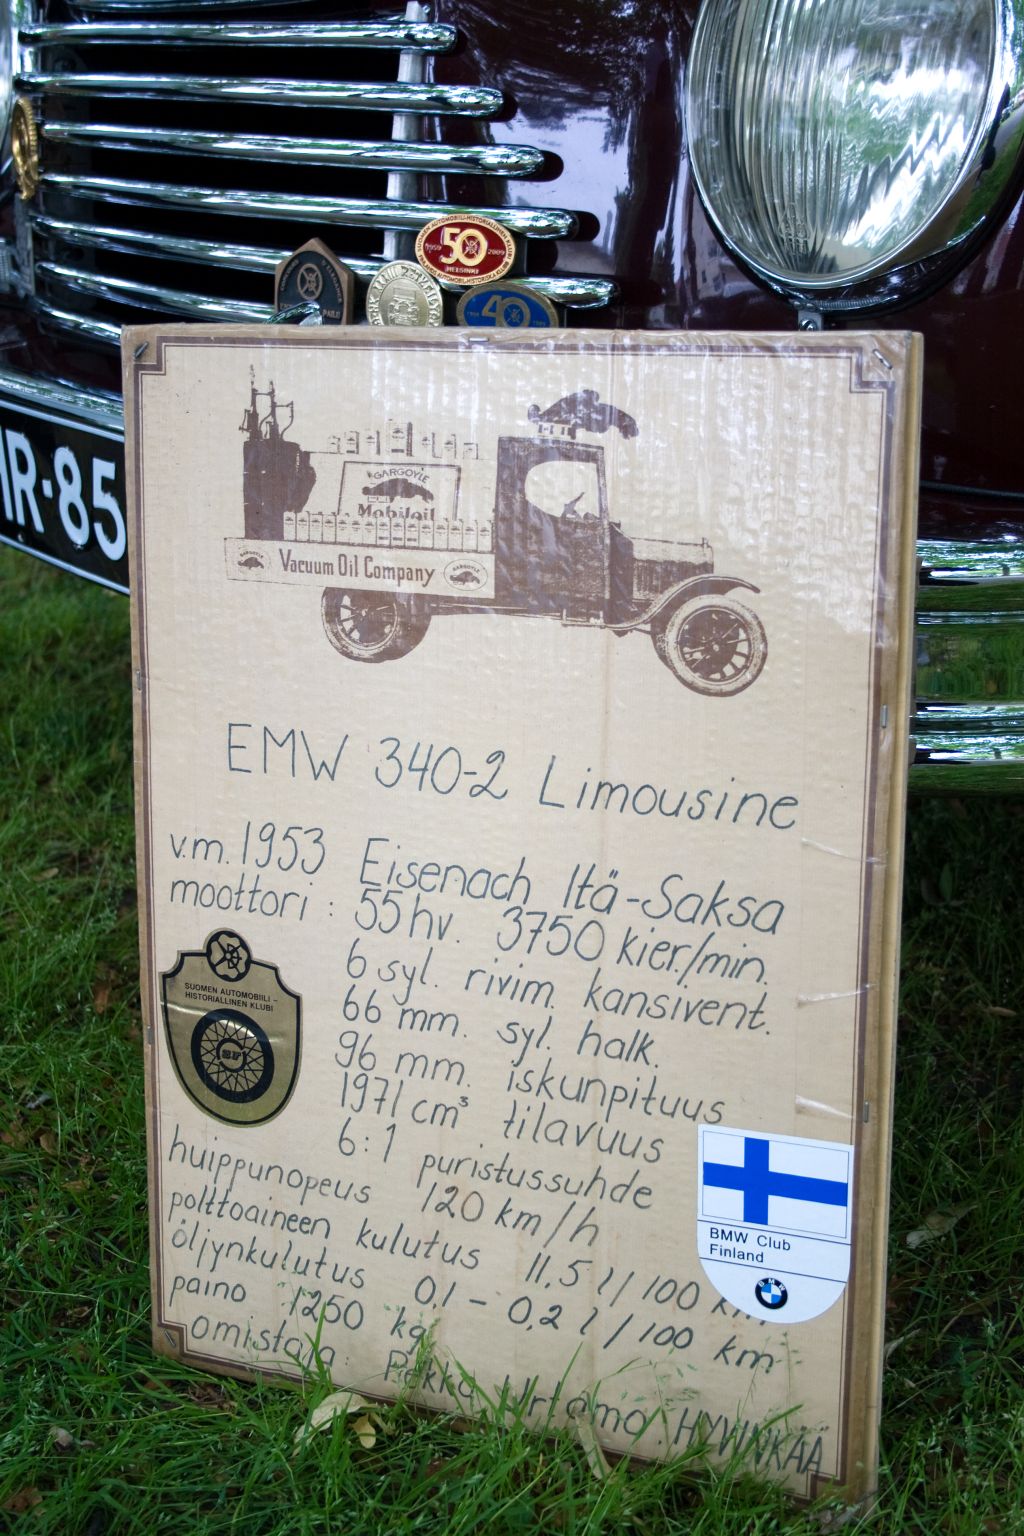 50
1959
2009
HELSINKI
40
IR-85
GARGOYLE
Mobiloil
GARGOYLE
Vacuum Oil Company
GARGOYLE
EMW 340-2 Limousine
v.m. 1953 Eisenach Itä-Saksa
moottori: 55 hv. 3750 kier./min.
6 syl. rivim. kansivent.
66 mm. syl. halk.
96 mm. iskunpituus
1971 cm³. tilavuus
6:1 puristussuhde
huippunopeus 120 km/h
polttoaineen kulutus 11,5 l/100 km
öljynkulutus 0,1 - 0,2 l/100 km
paino 1250 kg
omistaja: Pekka Urtamo. HYVINKÄÄ
SUOMEN AUTOMOBIILI-
HISTORIALLINEN KLUBI
BMW Club
Finland
BMW